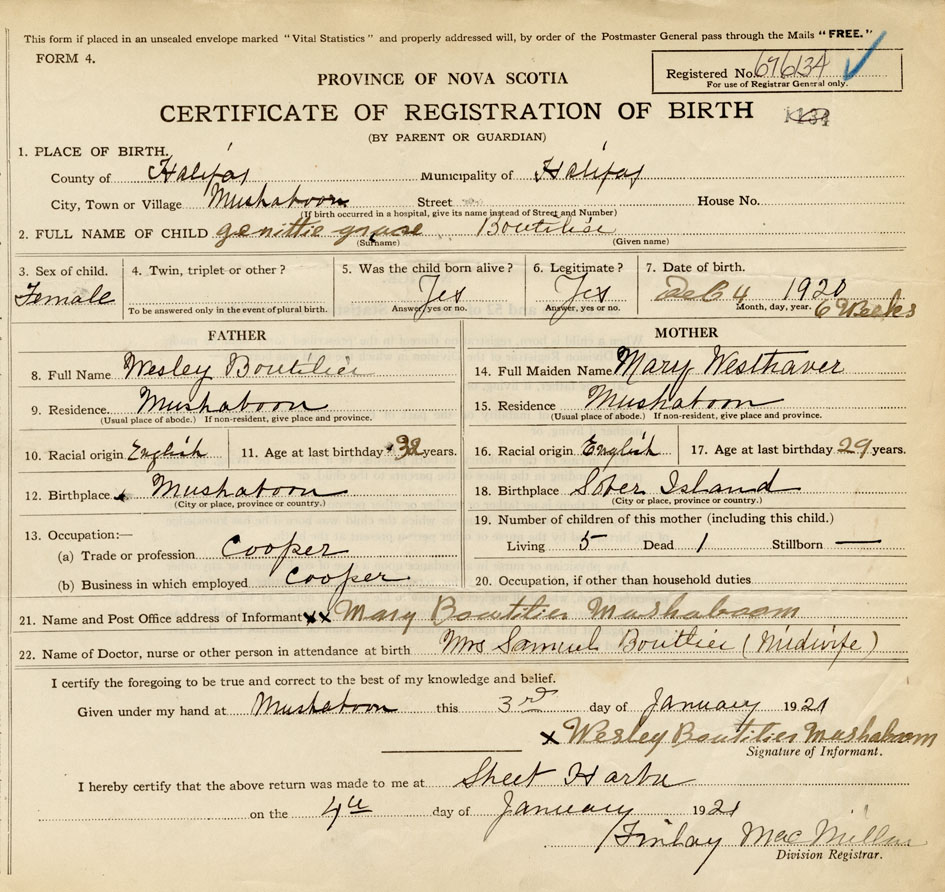 This form if placed in an unsealed envelope marked "Vital Statistics" and properly addressed will, by order of the Postmaster General pass through the Mails "FREE."
FORM 4.
Registered No. 696134
For use of Registrar General only.
PROVINCE OF NOVA SCOTIA
CERTIFICATE OF REGISTRATION OF BIRTH
(BY PARENT OR GUARDIAN)
1. PLACE OF BIRTH.
County of Halifax Municipality of Halifax
City, Town or Village Mushaboon Street House No.
(If birth occurred in a hospital, give its name instead of Street and Number)
2. FULL NAME OF CHILD genittie grace Boutilier
(Surname) (Given name)
3. Sex of child. 4. Twin, triplet or other? 5. Was the child born alive? 6. Legitimate? 7. Date of birth.
Female Yes Yes Dec 4 1920
To be answered only in the event of plural birth. Answer, yes or no. Answer, yes or no. Month, day, year. 6 Weeks
FATHER MOTHER
8. Full Name Wesley Boutilier 14. Full Maiden Name Mary Westhaver
9. Residence. Mushaboon 15. Residence Mushaboon
(Usual place of abode.) If non-resident, give place and province. (Usual place of abode.) If non-resident, give place and province.
10. Racial origin English 11. Age at last birthday 32 years. 16. Racial origin English 17. Age at last birthday 29 years.
12. Birthplace Mushaboon 18. Birthplace Sober Island
(City or place, province or country.) (City or place, province or country.)
19. Number of children of this mother (including this child.)
13. Occupation:—
Living 5 Dead 1 Stillborn —
(a) Trade or profession Cooper
(b) Business in which employed Cooper 20. Occupation, if other than household duties
21. Name and Post Office address of Informant xx Mary Boutilier Mushaboom
22. Name of Doctor, nurse or other person in attendance at birth Mrs Samuel Boutlier (Midwife)
I certify the foregoing to be true and correct to the best of my knowledge and belief.
Given under my hand at Mushaboon this 3rd day of January 1921
x Wesley Boutilier Mushaboom
Signature of Informant.
I hereby certify that the above return was made to me at Sheet Harbr
on the 4th day of January 1921
Finlay MacMillan
Division Registrar.